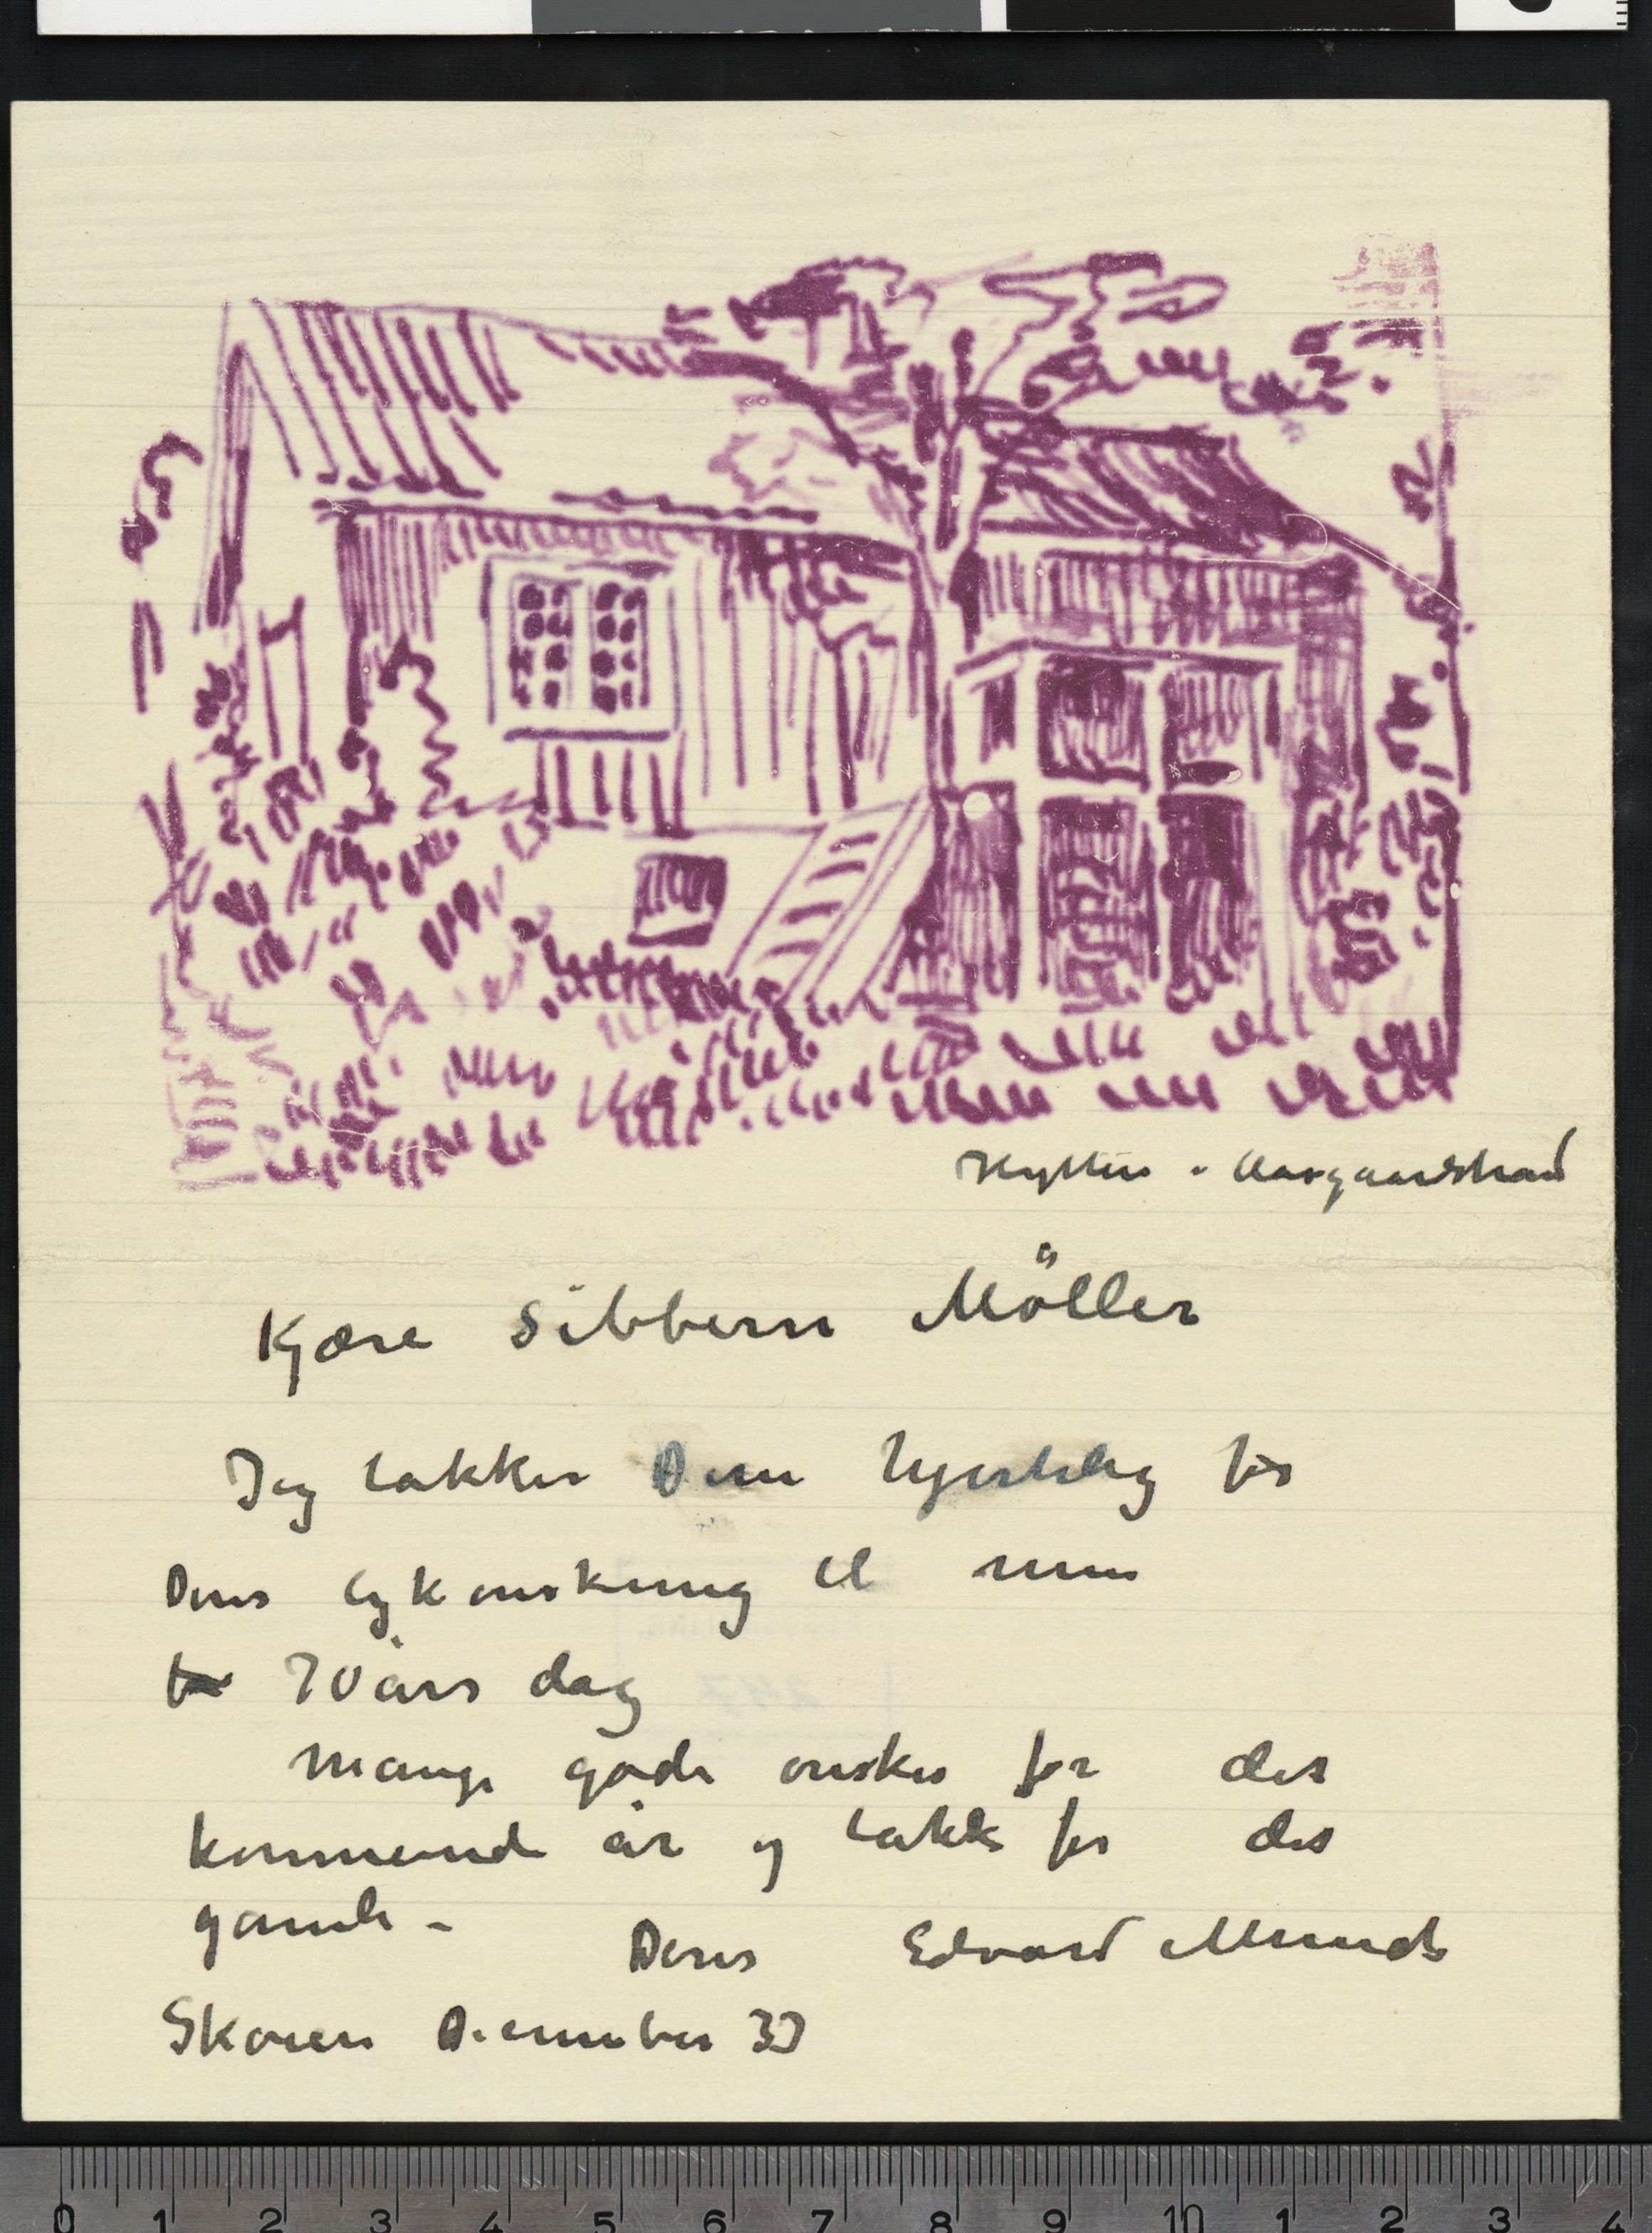 Hytten i Aasgaardstrand
Kjære Sibbern Möller
Jeg takker Dem hjertelig for
Deres lykønskning til min
70 års dag
Mange gode ønsker for det
kommende år og takk for det
gamle –
Deres Edvard Munch
Skøien December 33
0 1 2 3 4 5 6 7 8 9 10 1 2 3 4